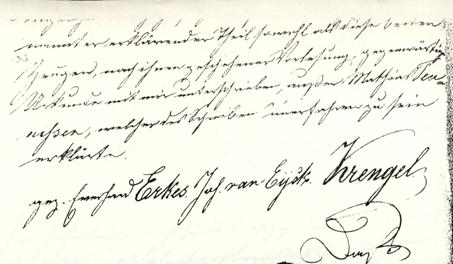 nannter erklärender Theil sowohl als diese beiden
Zeugen, nach ihnen geschehener Vorlesung, gegenwärtige
Urkunde mit mir unterschrieben, außer Mathias Ten-
welcher des Schreibens unerfahren zu sein
erklärte.
gez. Everhard Erkes Joh. van Eyck. Krengel